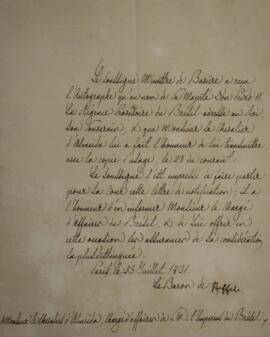 Le Soussigné Ministre de Bavière a reçu
l'Autographe qu'au nom de Sa Majesté Don Pedro II,
La Régence Provisoire du Brésil adresse au Roi,
son Souverain, & que Monsieur le Chevalier
d'Almeida lui a fait l'honneur de lui transmettre
avec la copie d'usage, le 23 du courant.
Le Soussigné s'est empressé de faire partir
pour Sa Cour cette lettre de notification; il a
l'honneur d'en informer Monsieur le Chargé
d'affaires du Brésil, & de Lui offrir en
cette occasion les assurances de Sa considération
la plus distinguée.
Paris, le 25 Juillet 1831.
Le Baron de
à Monsieur le Chevalier d'Almeida Chargé d'affaires de S. M. l'Empereur du Brésil